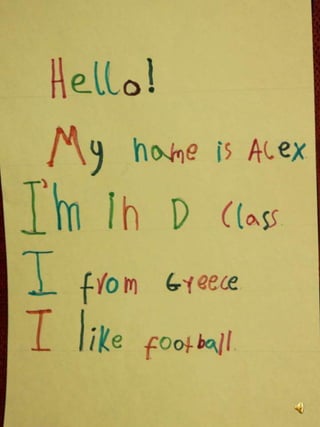 Hello!
My name is Alex
I'm in D class.
I from Greece
I like football.